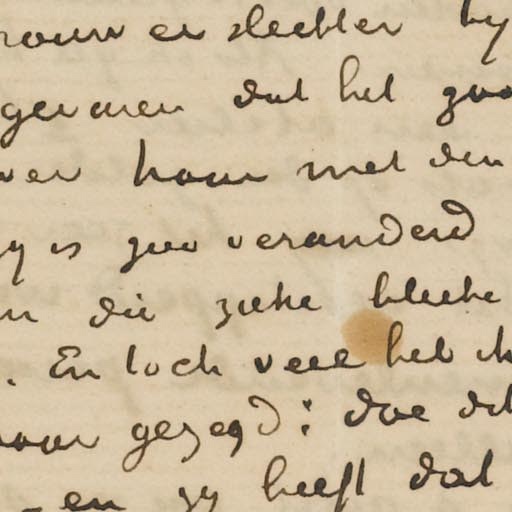 vrouw er slechter by
gevaren dat het goo
ver haar met den
zy is zoo veranderd
en die zieke bleeke
. En toch veel heb ik
haar gezegd: doe dit
- en zy heeft dat